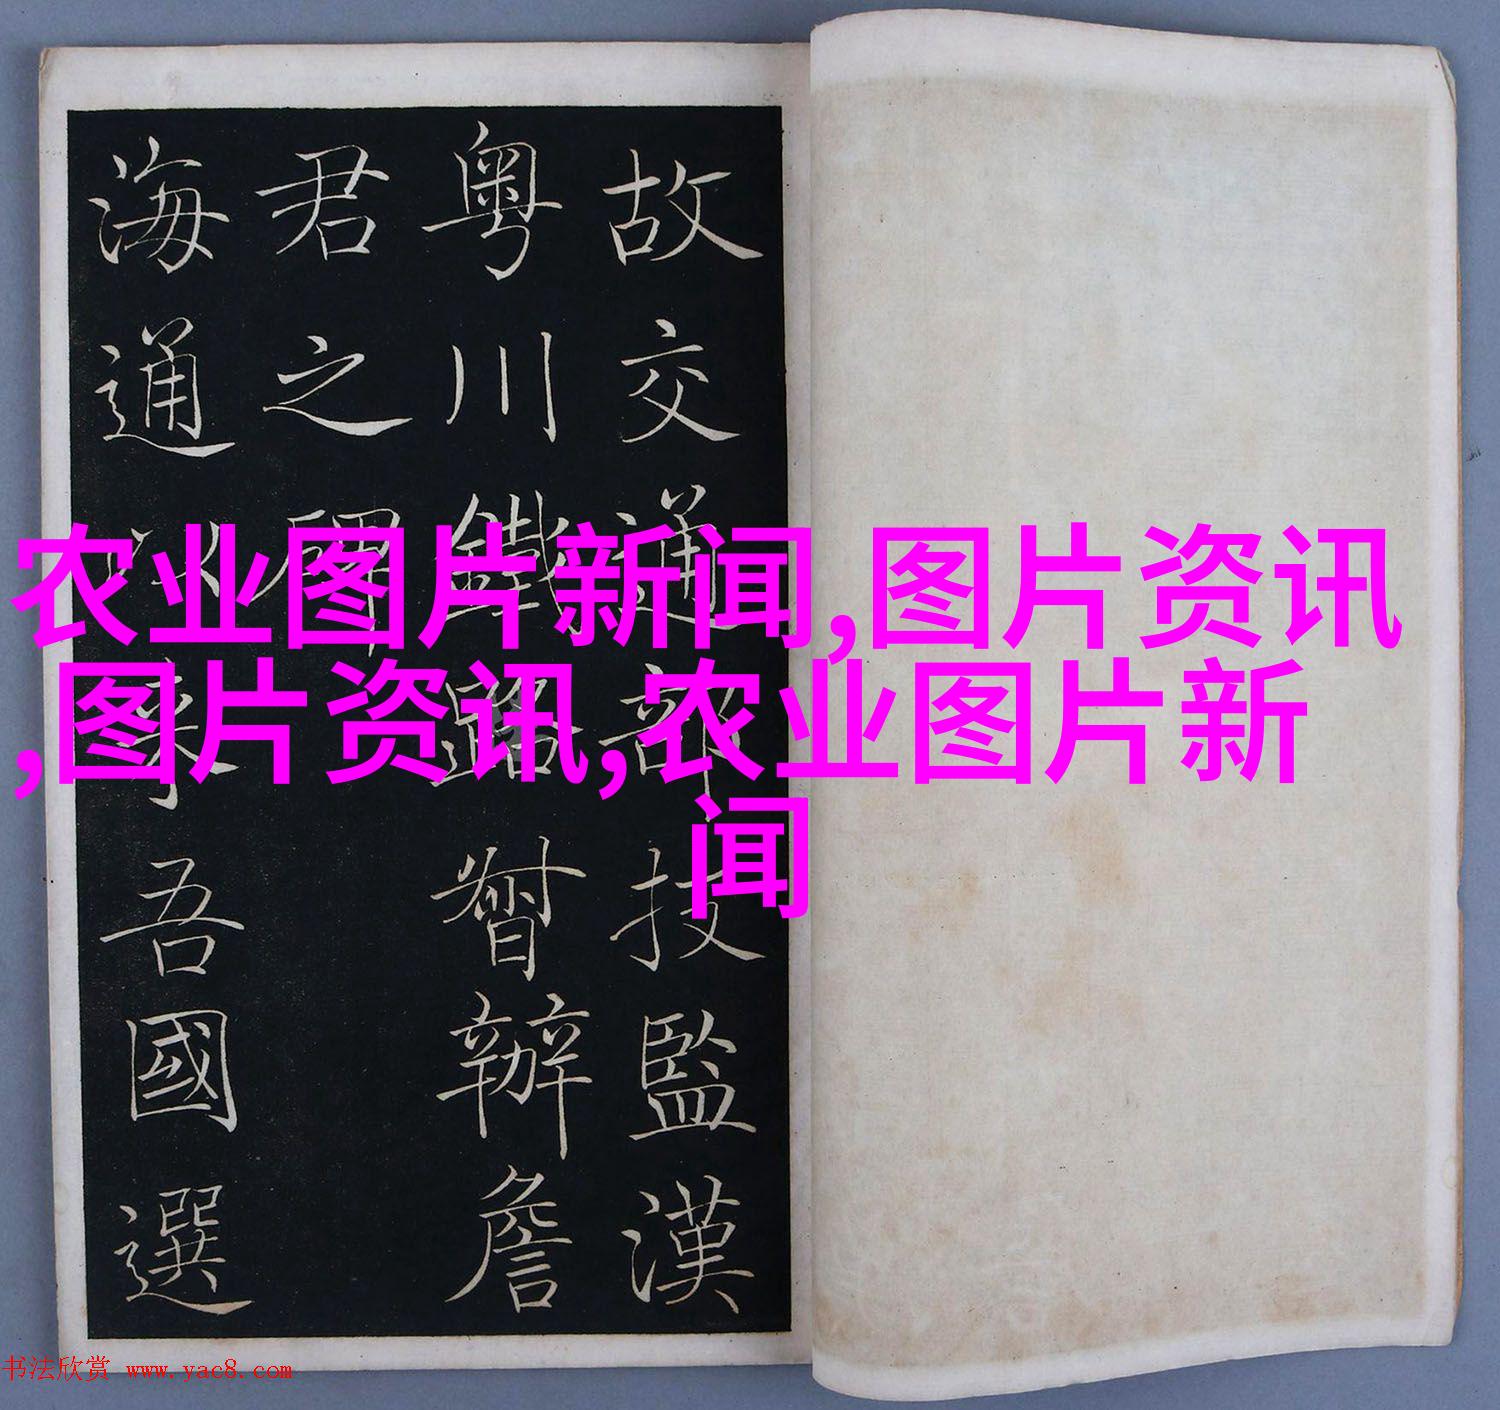 故交通部技監漢
粤川鐵路督辦詹
君之碑
海通以来吾國選
农业图片新闻,图片资讯
,图片资讯,农业图片新
闻
书法欣赏 www.yac8.com